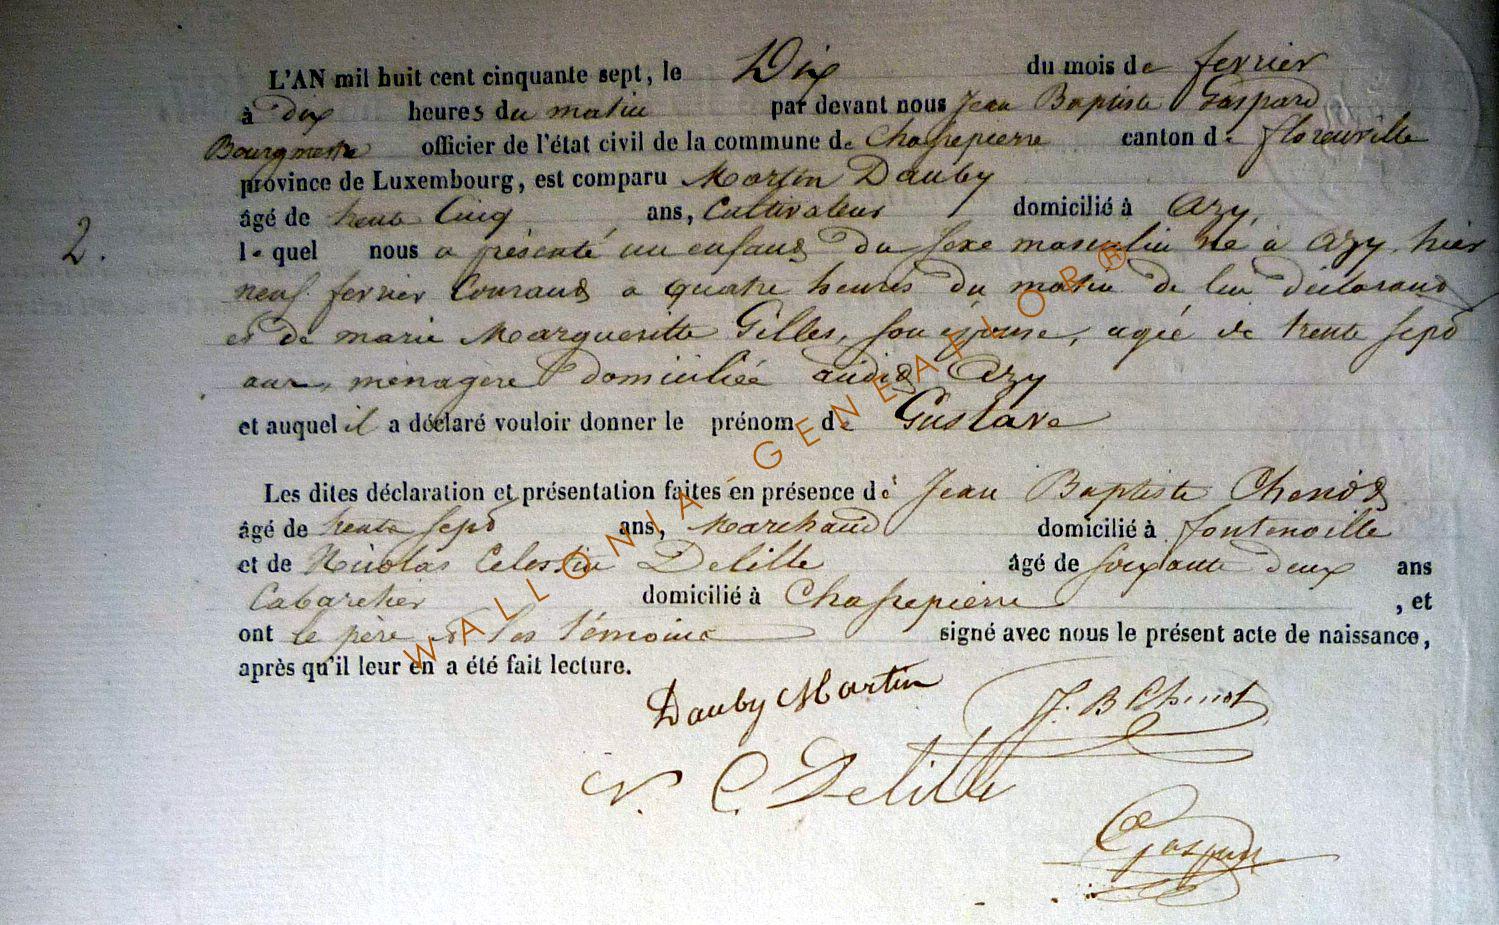 L'AN mil huit cent cinquante sept, le Dix du mois de fevrier
à dix heures du matin par devant nous Jean Baptiste Gaspard
Bourgmestre officier de l'état civil de la commune de Chassepierre canton de florenville
province de Luxembourg, est comparu Martin Dauby
âgé de trente Cinq ans, Cultivateur domicilié à Azy,
2. lequel nous a présenté un enfant du sexe masculin né à Azy, hier
neuf fevrier Courant a quatre heures du matin de lui déclarant
et de marie Margueritte Gilles, son épouse, agée de trente sept
ans, ménagère domiciliée audit Azy
et auquel il a déclaré vouloir donner le prénom de Gustave
Les dites déclaration et présentation faites en présence de Jean Baptiste Chenot
âgé de trente sept ans, Marchand domicilié à fontenoille
et de Nicolas Celestin Delille âgé de soixante deux ans
Cabaretier domicilié à Chassepierre, et
ont le père et les témoins signé avec nous le présent acte de naissance,
après qu'il leur en a été fait lecture.
Dauby Martin J. B Chenot
N. C. Delille
Gaspard
WALLONIA-GENEAFLOR®